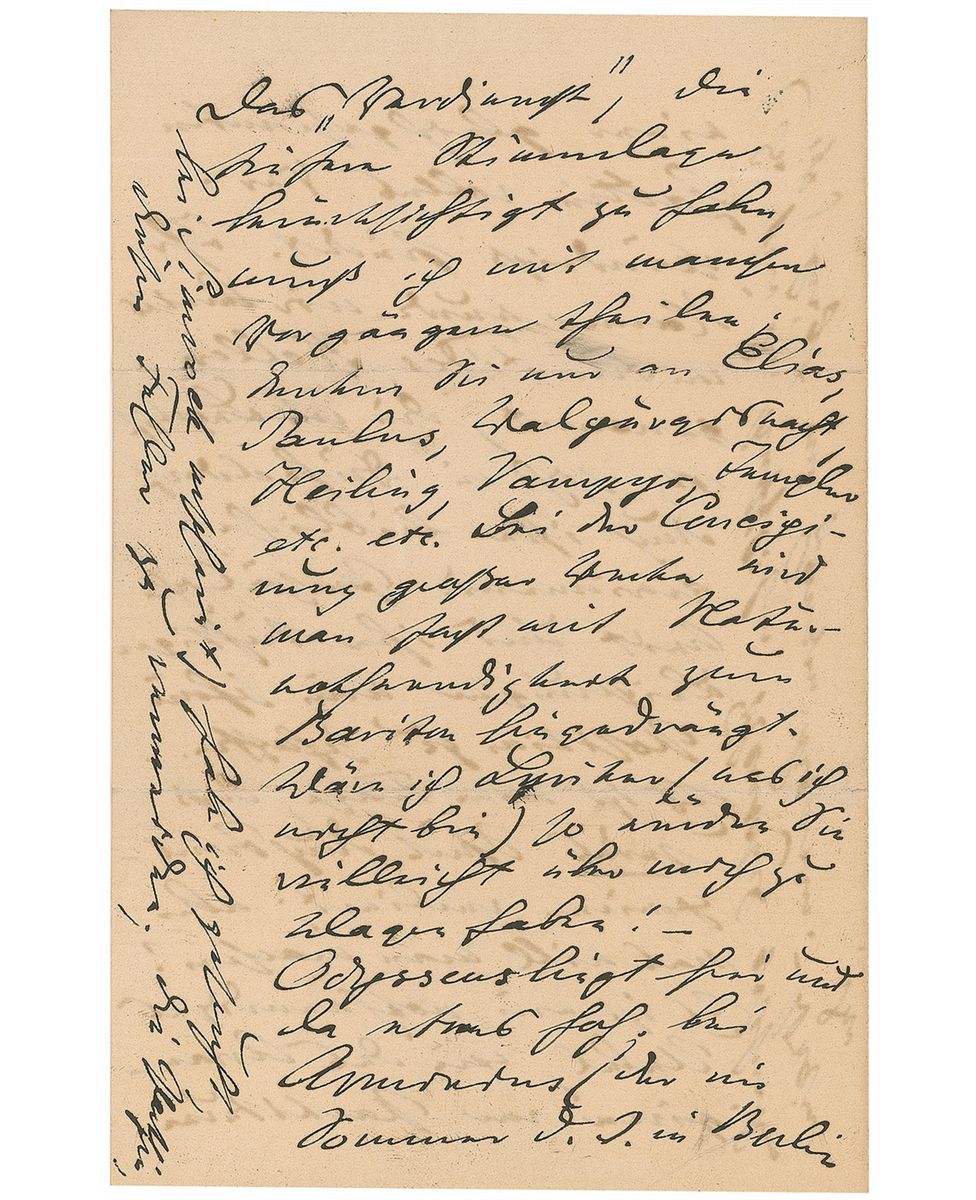 Das „Verdienst", die
tiefere Stimmlage
berücksichtigt zu haben,
muß ich mit manchen
Vorgängern theilen;
denken Sie nur an Elias,
Paulus, Walpurgisnacht,
Heiling, Vampyr, Templer
etc. etc. Bei der Concipi-
rung großer Werke wird
man fast mit Natur-
nothwendigkeit zum
Bariton hingedrängt.
Wäre ich Lyriker (was ich
nicht bin) so würden Sie
vielleicht über mich zu
klagen haben! –
Odysseus liegt hie und
da etwas hoch; bei
Arminius (der im
Sommer d. J. in Berlin
bei Simrock erscheint) hab ich gesucht
diesen Fehler zu vermeiden; die Partie